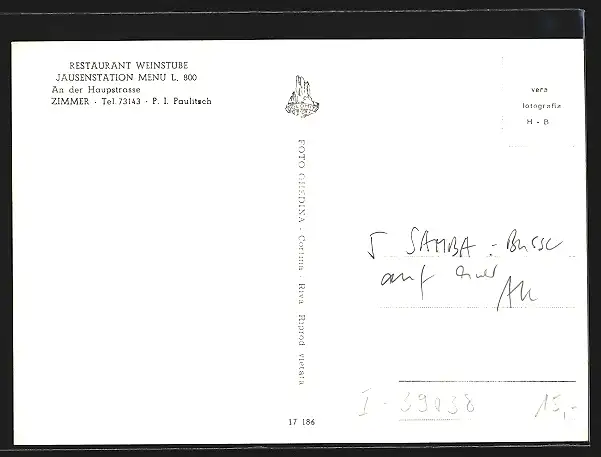 RESTAURANT WEINSTUBE
JAUSENSTATION MENU L. 800
An der Haupstrasse
ZIMMER · Tel. 73143 · P. I. Paulitsch
vera
fotografia
H - B
FOTO GHEDINA - Cortina - Riva Riprod vietata
5 SAMBA-Busse
auf
I - 39038
15,-
17 186